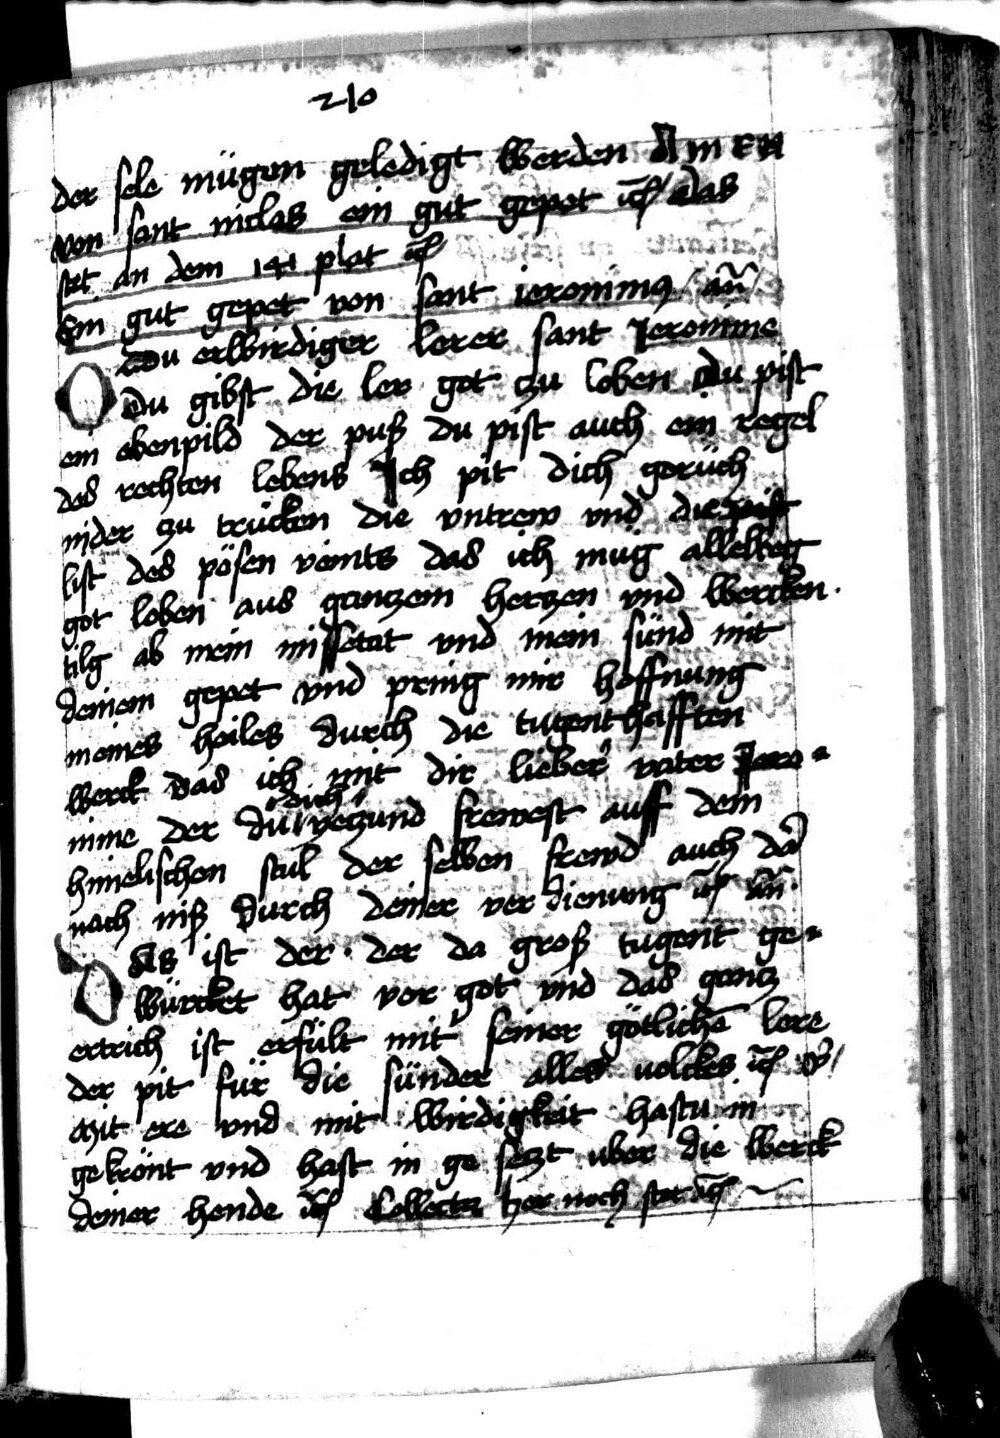 210
der sele mügen geledigt werden Amen
von sant niclas ein gut gepet ꝛc̄ das
stet an dem 141 plat ꝛc̄
Ein gut gepet von sant ieronimꝰ an̄
O du erwirdiger lerer sant Jeronime
du gibst die ler got zu loben du pist
ein ebenpild der puß du pist auch ein regel
des rechten lebens Ich pit dich geruͤch
nider zu trücken die vntrew vnd die
list des pösen veints das ich mug alleweg
got loben aus gantzem hertzen vnd wercken.
tilg ab mein missetat vnd mein sünd mit
deinem gepet vnd pring mir hoffnung
meines heiles durch die tugenthafften
werck das ich mit dir lieber vater Jero=
nime der du dich yetzund frewest auff dem
himelischen stul der selben frewd auch da
nach niß durch deiner verdienung ꝛc̄ an̄
Das ist der. der da groß tugent ge=
würcket hat vor got vnd das gantz
ertrich ist erfült mit seiner götlichē lere
der pit für die sünder alles volckes ꝛc̄ v̄/
Mit ere vnd mit wirdigkeit hastu in
gekrönt vnd hast in ge setzt uber die werck
deiner hende ꝛc̄ Collecta her noch stet ꝛc̄